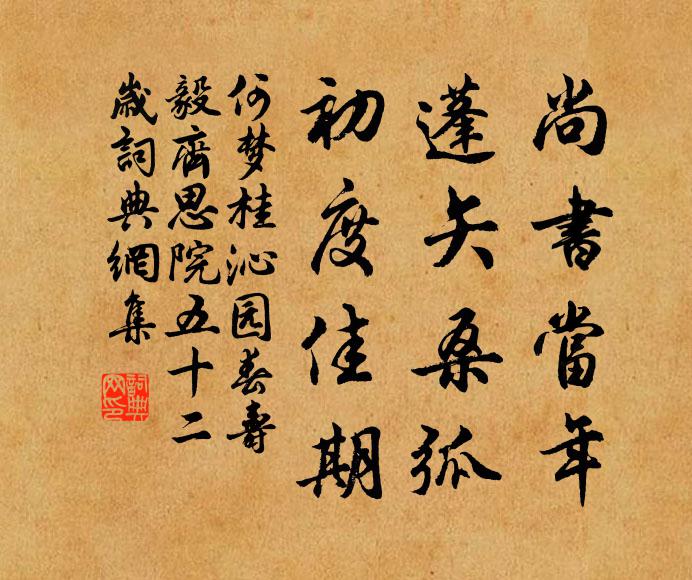 尚書當年
蓬矢桑弧
初度佳期
何梦桂沁园春壽
毅齋思院五十二
歲詞典網集
詞典网印